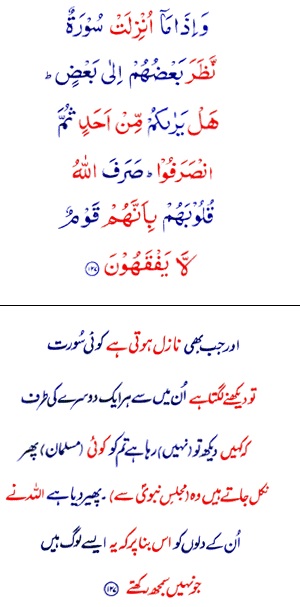 وَاِذَا مَاۤ اُنْزِلَتْ سُوْرَةٌ
نَّظَرَ بَعْضُهُمْ اِلٰى بَعْضٍ ؕ
هَلْ يَرٰىكُمْ مِّنْ اَحَدٍ ثُمَّ
انْصَرَفُوْا ؕ صَرَفَ اللّٰهُ
قُلُوْبَهُمْ بِاَنَّهُمْ قَوْمٌ
لَّا يَفْقَهُوْنَ ﴿۱۲۷﴾
اور جب بھی نازل ہوتی ہے کوئی سُورت
تو دیکھنے لگتا ہے اُن میں سے ہر ایک دوسرے کی طرف
کہ کہیں دیکھ تو (نہیں) رہا ہے تم کو کوئی (مسلمان) پھر
نکل جاتے ہیں وہ (مجلسِ نبویؐ سے) ۔ پھیر دیا ہے اللہ نے
اُن کے دلوں کو اس بنا پر کہ یہ ایسے لوگ ہیں
جو نہیں سمجھ رکھتے ﴿۱۲۷﴾